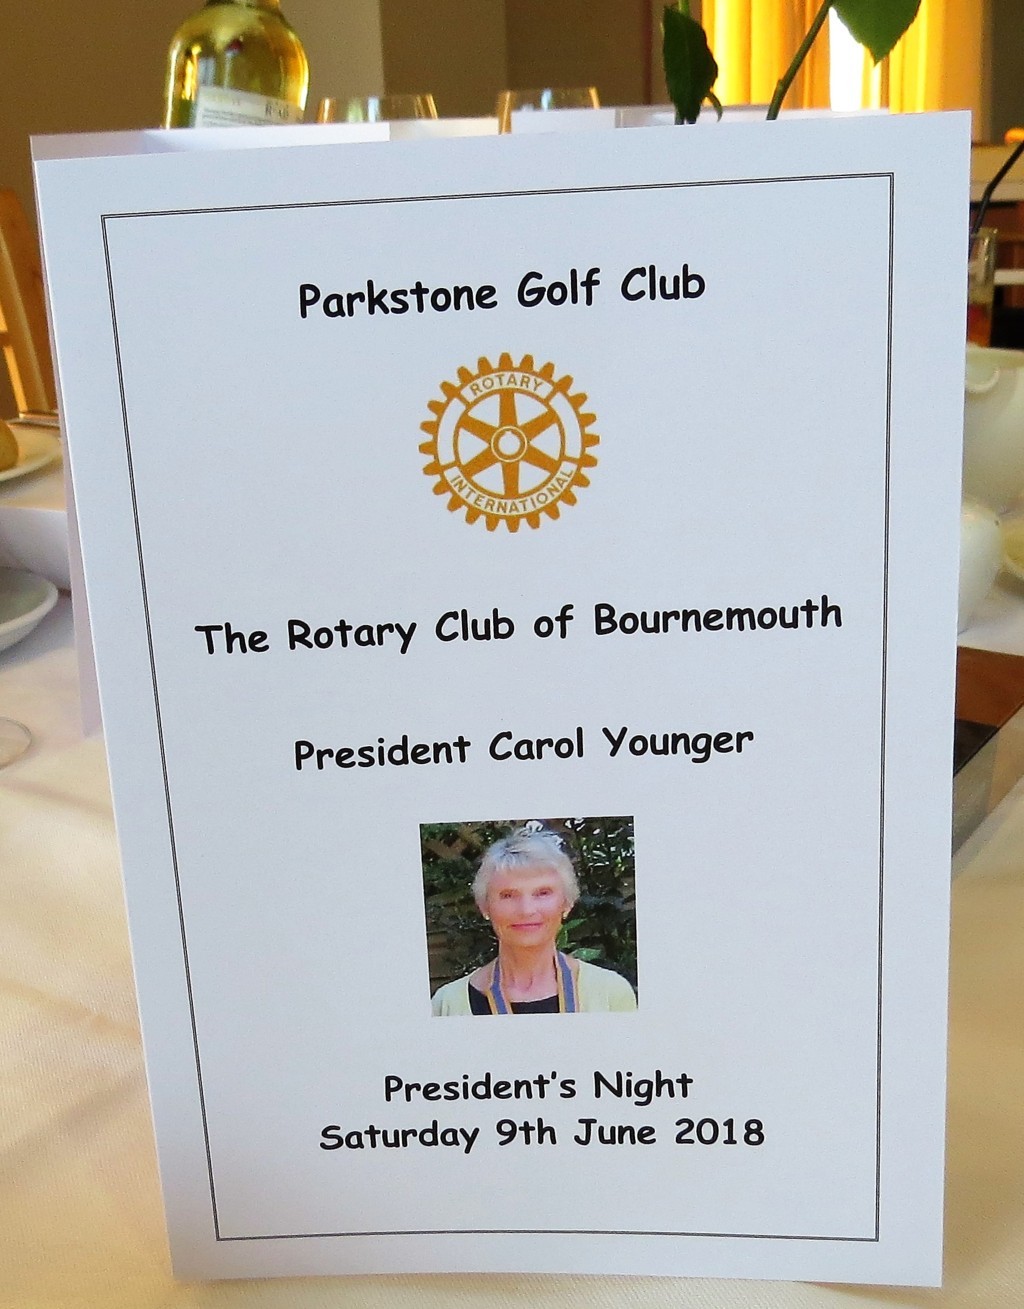 Parkstone Golf Club
ROTARY
INTERNATIONAL
The Rotary Club of Bournemouth
President Carol Younger
President's Night
Saturday 9th June 2018